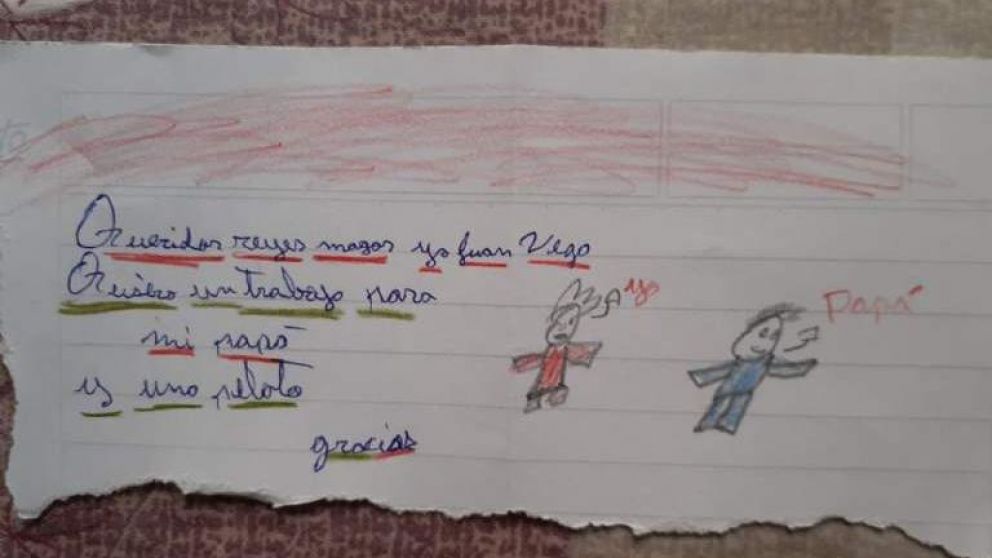 Queridos reyes magos yo Juan Vego
Quiero un trabajo para
mi papá
y una pelota
gracias
yo
Papá